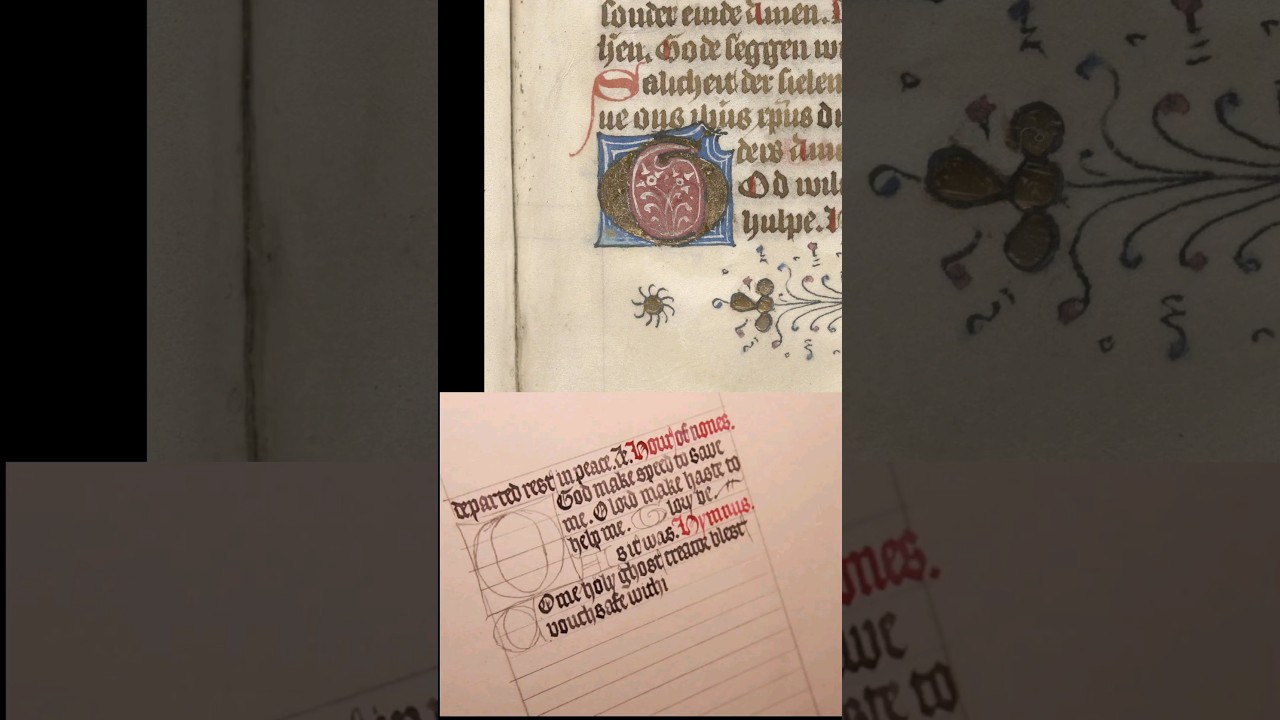 sonder einde Amen.
hen. Gode seggen wi
Salicheit der sielen
ue ons ihūs xpūs du
ders Ame
God wil
hulpe.
departed rest in peace. &. Hour of nones.
God make speed to save
me. O lord make haste to
help me. Glory be.
As it was. Hymnus.
Ome holy ghost creator blest
vouchsafe with
ones.
ave
ste to